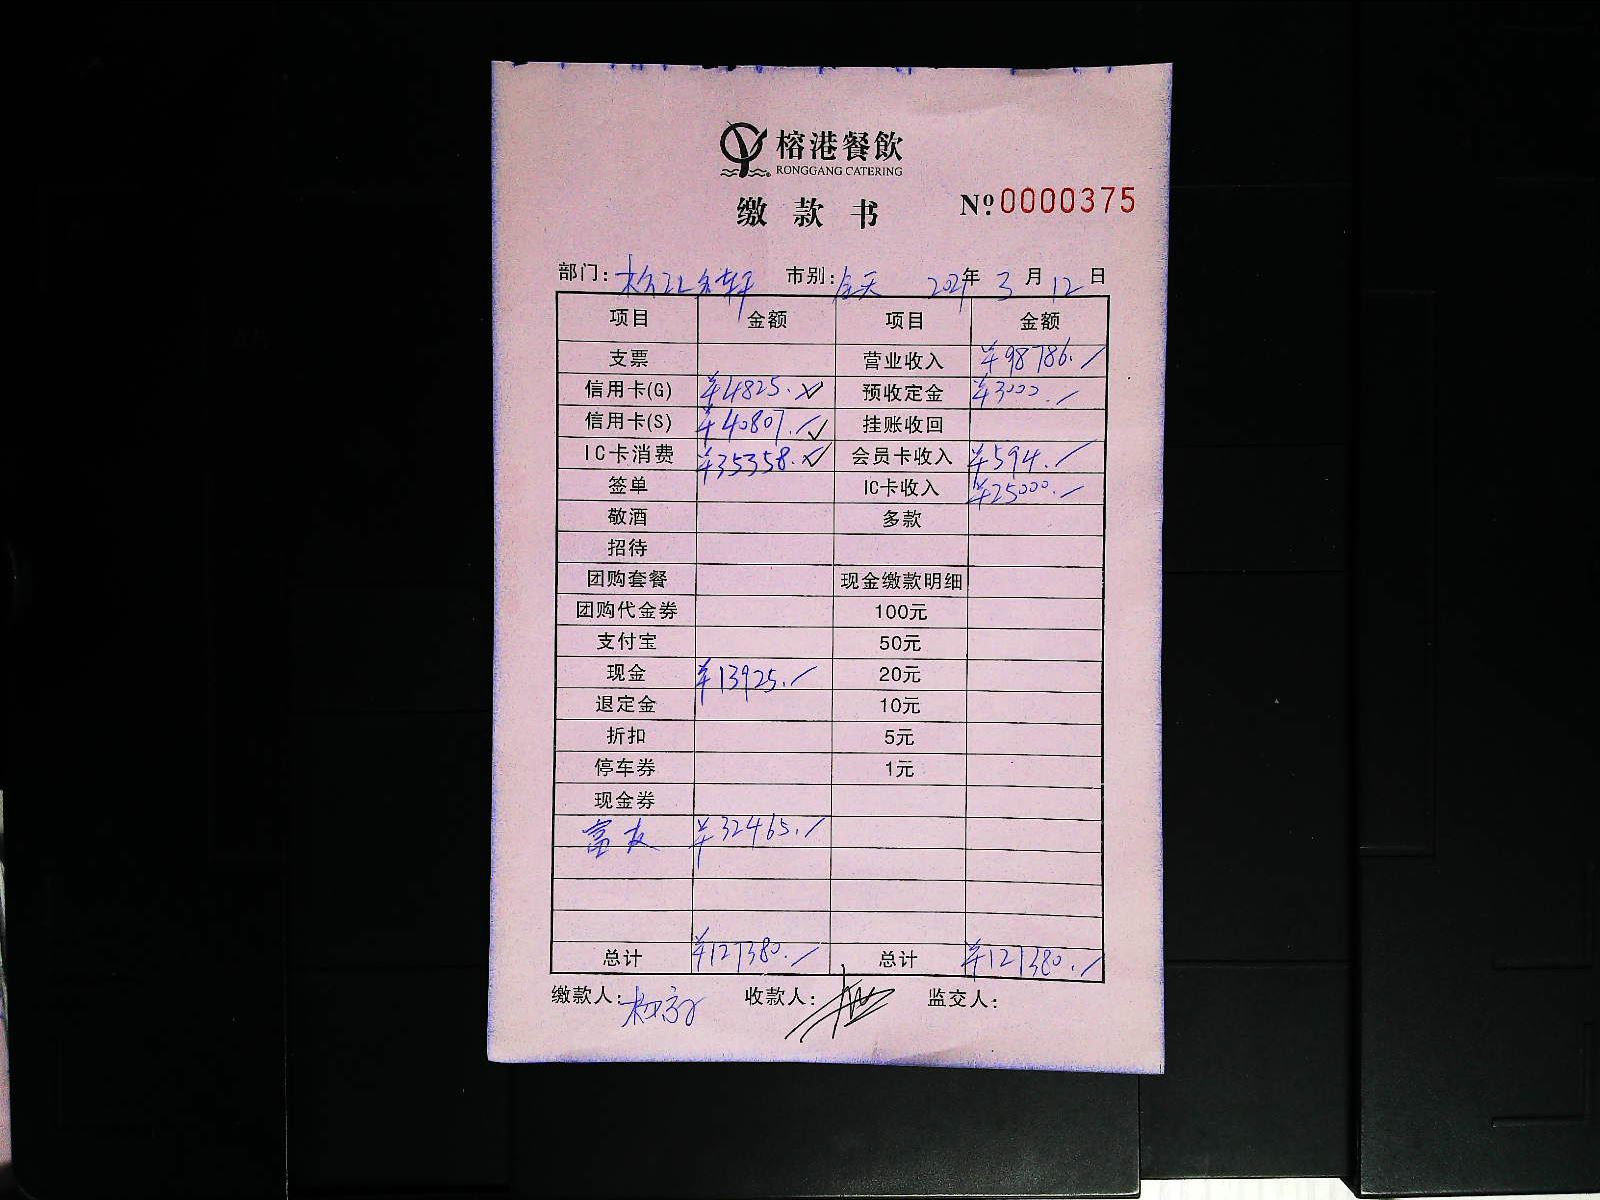 榕港餐飲
RONGGANG CATERING
缴款书 Nº.0000375
部门: 市别:全天 2021年3月12日
项目 金额 项目 金额
支票 营业收入 ¥98786.
信用卡(G) ¥4825. 预收定金 ¥3000.
信用卡(S) ¥40807. 挂账收回
IC卡消费 ¥35358. 会员卡收入 ¥594.
签单 IC卡收入 ¥25000.
敬酒 多款
招待
团购套餐 现金缴款明细
团购代金券 100元
支付宝 50元
现金 ¥13925. 20元
退定金 10元
折扣 5元
停车券 1元
现金券
富友 ¥32465.
总计 ¥127380. 总计 ¥127380.
缴款人: 收款人: 监交人: